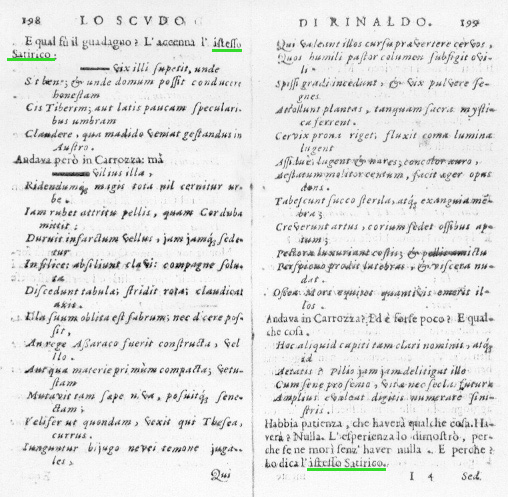 198 LO SCVDO
E qual fù il guadagno? L'accenna l'istesso
Satirico.
Vix illi supetit, unde
& unde domum possit conducere
honestam
Cis Tiberim; aut latis paucam speculari-
bus umbram
Claudere, qua madido veniat gestandus in
Austro.
Andava però in Carrozza: mà
Vilis illa,
Ridendumq; magis tota nil cernitur ur-
be.
Iam rubet attritu pellis, quam Corduba
mittit:
Duruit infarctum vellus, jam jamq; sede-
tur
Infelice: absiliunt clavi: compagne solu-
ta
Discedunt tabulæ; stridit rota; claudicat
axis.
Illa suum oblita est fabrum; nec dicere pos-
sit,
An rege Assaraco fuerit constructa, vel
Illo.
Antqua materie primùm compacta; vetu-
stam
Mutavit tam sæpe novam, posuitq; senec-
tam;
Vel iser ut quondam, vexit qui Thesea,
currus.
Iunguntur bijugo nevei temone juga-
les,
Qui
DI RINALDO. 199
Qui valeant illos cursu prævertere cervos,
Quos humili pastor columen subfigit ovi-
li.
Spissi gradu incedunt, & vix pulvere se-
gnes
Attollunt plantas, tanquam sacra mysti-
ca ferrent.
Cervix prona riget; fluxit coma lumina
lugent
Assiduè; lugent & nares; concolor auro,
Aestatum molitor centum, facit æger opus
dens.
Tabescunt succo sterila, atq; exanguia mē-
bra;
Creverunt artus, corium sedet ossibus ap-
tum;
Pectora luxuriant costis; &
Perspicuo prodit latebras, & viscera nu-
dat.
Ossea labors equitet quantivis emerit il-
los.
Andava in Carrozza? Ed è forse poco? E qual-
che cosa.
Hoc aliquid capiti tam clari nominis, atq;
id
Aetatis & Pilio jam jam delitigat illo
Cum sene pro semo, vitæ nec secla futuræ
Amplius evaleat digitis numerare sini-
stris.
Habbia patienza, che haverà qualche cosa. Ha-
verà? Nulla. L'esperienza lo dimostrò, per-
che se ne morì senz'haver nulla. E perche?
Lo dica l'istesso Satirico.
I 4 Sed.